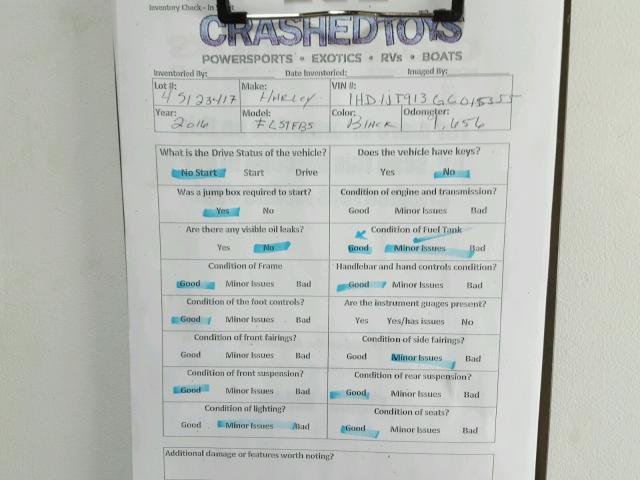 Inventory Check - In
CRASHEDTOYS
POWERSPORTS • EXOTICS • RVs • BOATS
Inventoried By: Date Inventoried: Imaged By:
Lot #: Make: VIN #:
45123417 Harley 1HD1JT913GC015355
Year: Model: Color: Odometer:
2016 FLSTFBS Black 1,656
What is the Drive Status of the vehicle? Does the vehicle have keys?
No Start Start Drive Yes No
Was a jump box required to start? Condition of engine and transmission?
Yes No Good Minor Issues Bad
Are there any visible oil leaks? Condition of Fuel Tank
Yes No Good Minor Issues Bad
Condition of Frame Handlebar and hand controls condition?
Good Minor Issues Bad Good Minor Issues Bad
Condition of the foot controls? Are the instrument guages present?
Good Minor Issues Bad Yes Yes/has issues No
Condition of front fairings? Condition of side fairings?
Good Minor Issues Bad Good Minor Issues Bad
Condition of front suspension? Condition of rear suspension?
Good Minor Issues Bad Good Minor Issues Bad
Condition of lighting? Condition of seats?
Good Minor Issues Bad Good Minor Issues Bad
Additional damage or features worth noting?